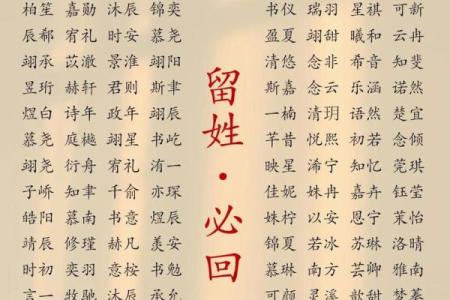 柏笙 嘉勋 沐辰 锦奕
辰郗 宥礼 时安 慕尧
翊承 苡澈 景淮 翊阳
昱珩 赫轩 君则 斯聿
煜白 诗年 政年 翊辰
慕尧 庭樾 翊星 书屹
翊尧 衍舟 宥礼 洧一
子峤 知聿 千俞 亦琛
皓阳 慕南 书意 煜辰
靖辰 修瑾 赫凡 美安
时初 奕羽 意桉 书勉
言一 牧驰 承允
留姓·必回
书仪 瑞羽 星祺 可新
盈夏 翊甜 曦和 云冉
清悠 念非 希音 一斐
斯嘉 念云 乐涵 诺然
一楠 清玥 语然 楚宜
芊昔 悦熙 初若 念倾
映星 浠宁 知忆 莞琪
佳妮 姝冉 嘉卉 钰莹
姝柠 以安 恩宁 茉怡
锦夏 若冰 苏琳 洛晴
慕琳 南方 芸卿 雅楠
可昕 灵溪 歆甜